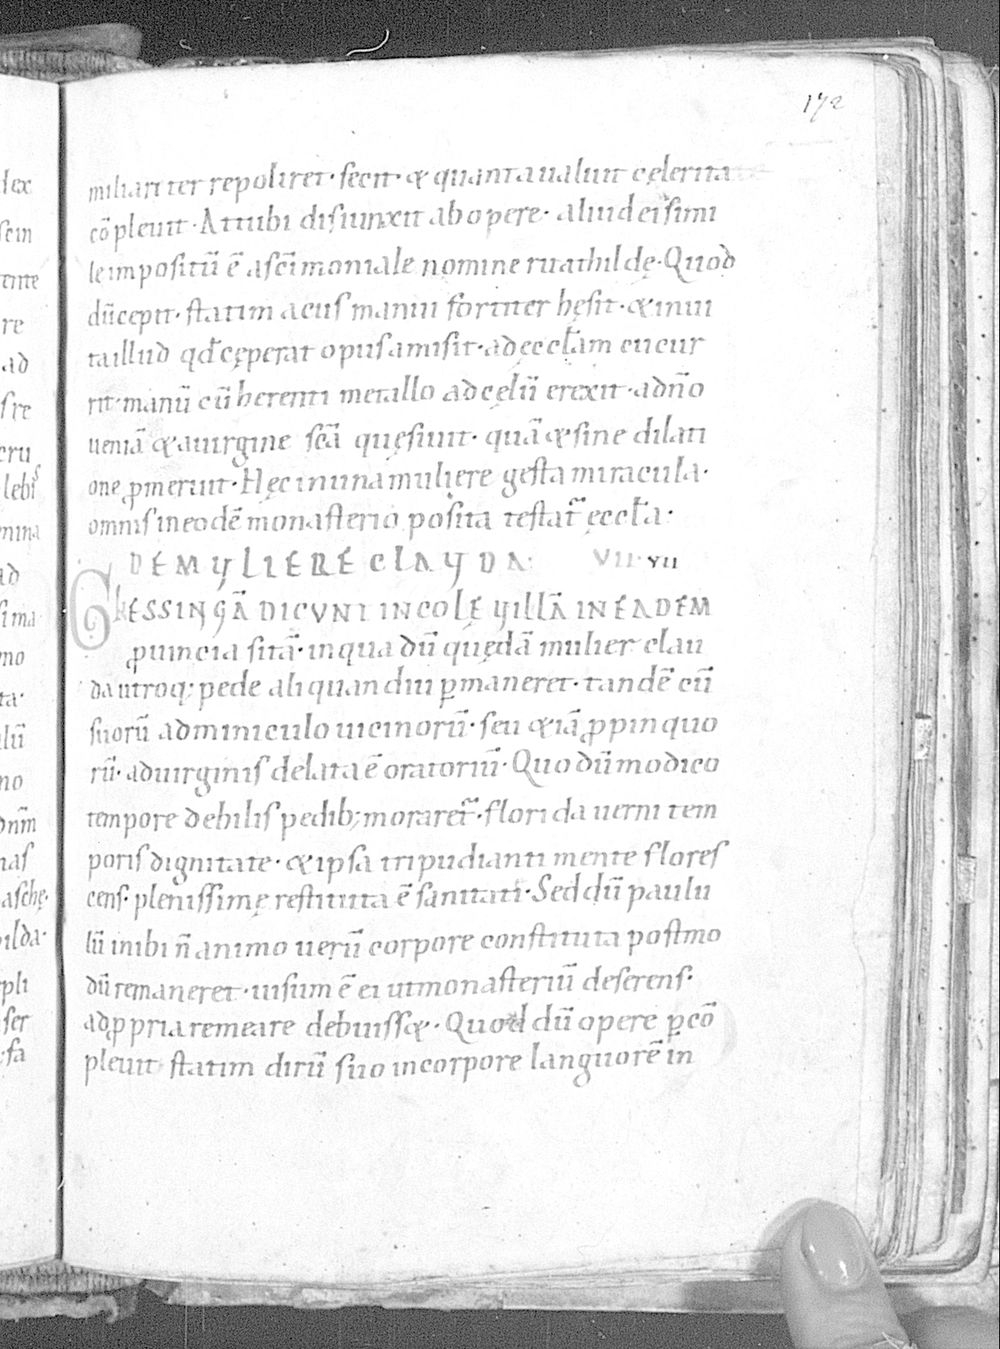 172
miliariter repoliret· fecit· & quanta ualuit cęlerita
cō pleuit· At tubi disiunxit ab opere· aliud ei simi
le impositū ē a scīmoniale nomine ruathildę· Quod
dū cepit· statim acus manui fortiter hęsit· & inui
ta illud qđ cęperat opus amisit· ad ęccłam cucur
rit· manū cū herenti metallo ad cęlū erexit· a dn̄o
ueniā & a uirgine scā quęsiuit· quā & sine dilati
one ꝓmeruit· Hęc in una muliere gesta miracula·
omnis in eodē monasterio posita testat̄ ęccła·
DE MVLIERE CLAVDA· VII· VII
GHESSINGĀ DICVNT INCOLE VILLĀ IN EADEM
ꝓuincia sitā· in qua dū quędā mulier clau
da utroq; pede aliquandiu ꝑmaneret· tandē cū
suorū adminiculo uicinorū· seu &iā ꝓpinquo
rū· ad uirginis delata ē oratoriū· Quo dū modico
tempore debilis pedib; moraret̄· florida uerni tem
poris dignitate· & ipsa tripudianti mente flores
cens· plenissimę restituta ē sanitati· Sed dū paulu
lū inibi n̄ animo uerū corpore constituta postmo
dū remaneret· uisum ē ei ut monasteriū deserens·
ad ꝓpria remeare debuiss&· Quod dū opere ꝑ cō
pleuit statim dirū suo in corpore languorē in